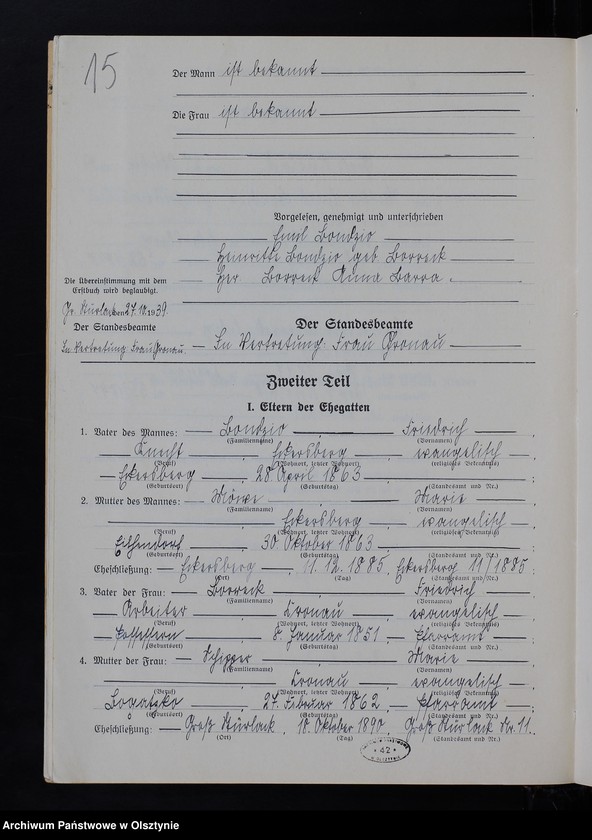 15
Der Mann ist bekannt
Die Frau ist bekannt
Vorgelesen, genehmigt und unterschrieben
Emil Bondzio
Henriette Bondzio geb Borreck
Her Borreck Anna Barra.
Die Übereinstimmung mit dem
Erstbuch wird beglaubigt.
Gr. Stürlack den 27.10.1939.
Der Standesbeamte
In Vertretung Frau Gronau.
Der Standesbeamte
In Vertretung Frau Gronau
Zweiter Teil
I. Eltern der Ehegatten
1. Vater des Mannes: Bondzio Friedrich,
(Familienname) (Vornamen)
Knecht, Eckersberg, evangelisch,
(Beruf) (Wohnort, letzter Wohnort) (religiöses Bekenntnis)
Eckersberg 28 April 1863;
(Geburtsort) (Geburtstag) (Standesamt und Nr.)
2. Mutter des Mannes: Möwe Marie,
(Familienname) (Vornamen)
Eckersberg, evangelisch,
(Beruf) (Wohnort, letzter Wohnort) (religiöses Bekenntnis)
30 Oktober 1863;
(Geburtsort) (Geburtstag) (Standesamt und Nr.)
Eheschließung: Eckersberg, 11. 12. 1885, Eckersberg 11/1885
(Ort) (Tag) (Standesamt und Nr.)
3. Vater der Frau: Borreck, Friedrich,
(Familienname) (Vornamen)
Arbeiter, Cronau, evangelisch,
(Beruf) (Wohnort, letzter Wohnort) (religiöses Bekenntnis)
8. Januar 1851, Pfarramt;
(Geburtsort) (Geburtstag) (Standesamt und Nr.)
4. Mutter der Frau: Schipper Marie,
(Familienname) (Vornamen)
Cronau, evangelisch,
(Beruf) (Wohnort, letzter Wohnort) (religiöses Bekenntnis)
Bogatzko, 27. Februar 1862, Pfarramt;
(Geburtsort) (Geburtstag) (Standesamt und Nr.)
Eheschließung: Groß Stürlack, 18. Oktober 1890, Groß Stürlack Nr. 11.
(Ort) (Tag) (Standesamt und Nr.)
42
Archiwum Państwowe w Olsztynie